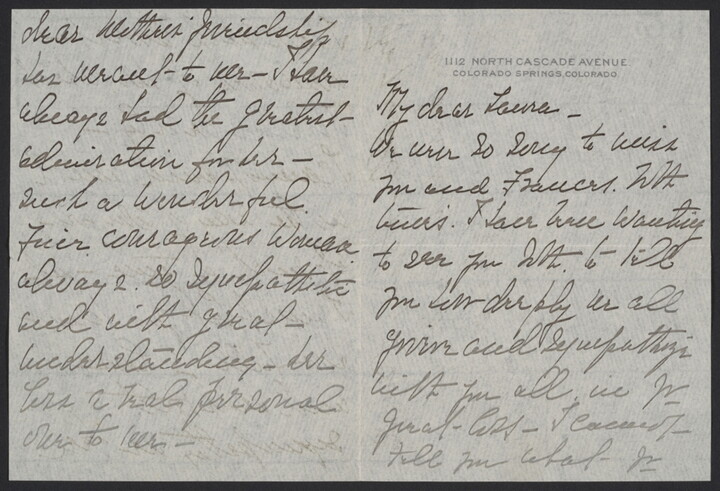 1112 NORTH CASCADE AVENUE
COLORADO SPRINGS, COLORADO.
My dear Laura –
We were so sorry to miss
you and Frances. Both
times. I have been wanting
to see you both. to tell
you how deeply we all
grieve and sympathize
with you all in yr
great loss – I cannot
tell you what yr
dear Mothers friendship
has meant to me – I have
always had the greatest
admiration for her –
such a wonderful
fine. courageous woman
always. so sympathetic
and with great
understanding – her
loss a real personal
one to me –